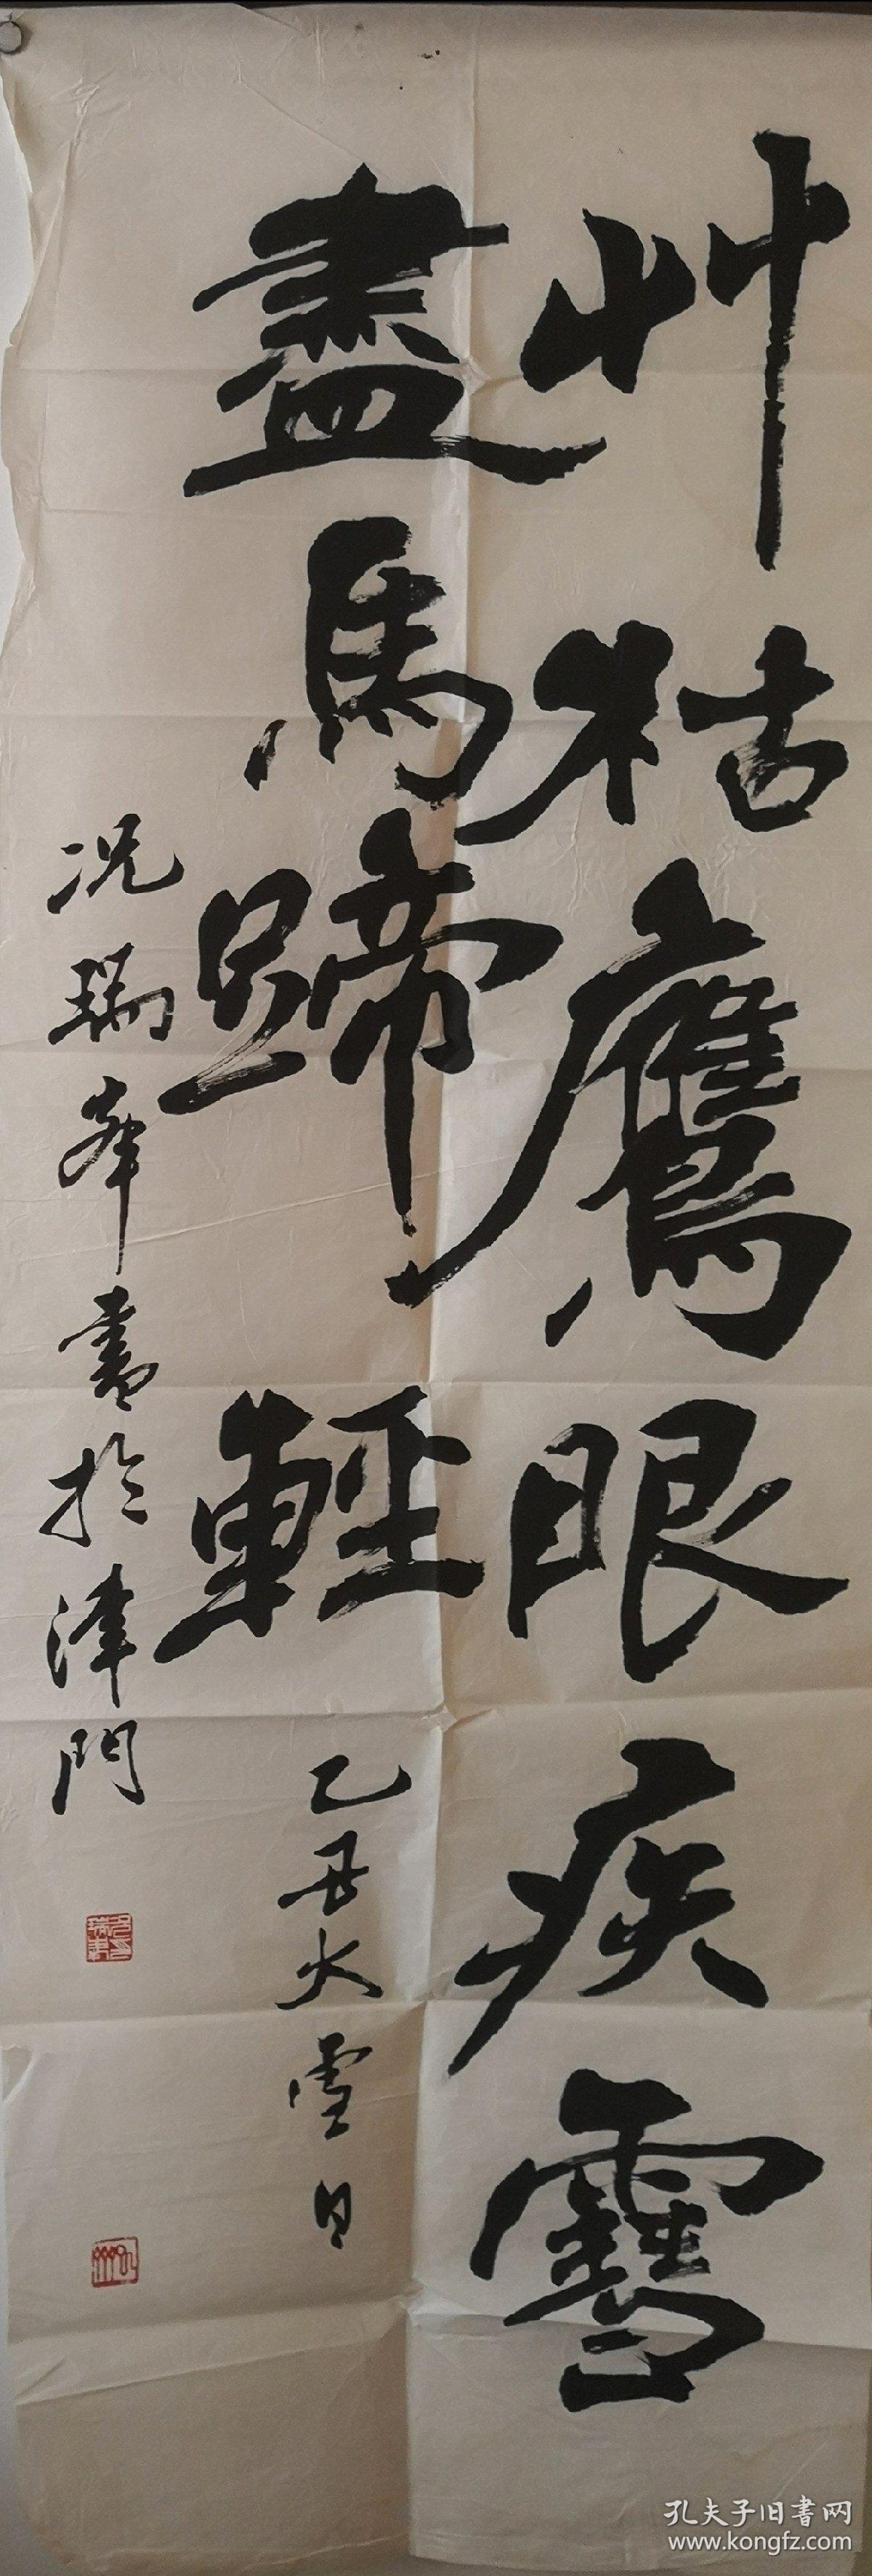 艸枯鷹眼疾雪
盡馬蹄輕
乙丑大雪日
况瑞峯書於津門
孔夫子旧書网
www.kongfz.com